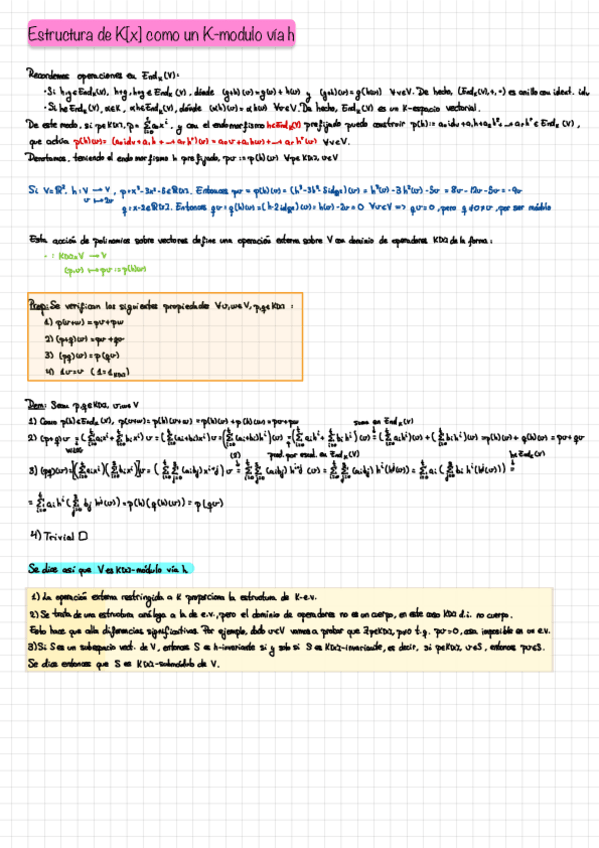 Estructura de K[x] como un K-modulo vía h
Recordemos operaciones en End_K(V):
· Si h,g∈End_K(V), h+g, h∘g∈End_K(V), dónde (g+h)(v)=g(v)+h(v) y (g∘h)(v)=g(h(v)) ∀v∈V. De hecho, (End_K(V),+,∘) es anillo con ident. id_V
· Si h∈End_K(V), α∈K, αh∈End_K(V), dónde (αh)(v)=αh(v) ∀v∈V. De hecho, End_K(V) es un K-espacio vectorial.
De este modo, si p∈K[x], p= Σ a_i x^i, y con el endomorfismo h∈End_K(V) prefijado puedo construir p(h):=a_0 id_V+a_1h+a_2h²+...+a_r h^r∈End_K(V),
que actúa p(h)(v)=(a_0 id_V+a_1h+...+a_r h^r)(v)=a_0v+a_1h(v)+...+a_r h^r(v) ∀v∈V.
Denotamos, teniendo el endomorfismo h prefijado, pv:=p(h)(v) ∀p∈K[x], v∈V
Si V=ℝ², h: V → V, p=x³-3x²-5∈ℝ[x]. Entonces pv=p(h)(v)=(h³-3h²-5id)(v)=h³(v)-3h²(v)-5v=8v-12v-5v=-9v
v ↦ 2v
q=x-2∈ℝ[x]. Entonces qv=q(h)(v)=(h-2id)(v)=h(v)-2v=0 ∀v∈V => qv=0, pero q≠0≠v, por ser módulo
Esta acción de polinomios sobre vectores define una operación externa sobre V con dominio de operadores K[x] de la forma:
· : K[x]×V → V
(p,v) ↦ pv:=p(h)(v)
Prop: Se verifican las siguientes propiedades ∀v,w∈V, p,q∈K[x]:
1) p(v+w)=pv+pw
2) (p+q)(v)=pv+qv
3) (pq)(v)=p(qv)
4) 1v=v (1=1_K[x])
Dem: Sean p,q∈K[x], v,w∈V
1) Como p(h)∈End_K(V), p(v+w)=p(h)(v+w)=p(h)(v)+p(h)(w)=pv+pw
suma en End_K(V)
prod. por escal. en End_K(V)
h∈End_K(V)
= Σ a_i h^i ( Σ b_j h^j(v))=p(h)(q(h)(v))=p(qv)
4) Trivial □
Se dice así que V es K[x]-módulo vía h
1) La operación externa restringida a K proporciona la estructura de K-e.v.
2) Se trata de una estructura análoga a la de e.v., pero el dominio de operadores no es un cuerpo, en este caso K[x] d.i. no cuerpo.
Esto hace que alla diferencias significativas. Por ejemplo, dado v∈V vamos a probar que ∃p∈K[x], p≠0 t.q. pv=0, cosa imposible en un e.v.
3) Si S es un subespacio vect. de V, entonces S es h-invariante si y solo si S es K[x]-invariante, es decir, si p∈K[x], v∈S, entonces pv∈S.
Se dice entonces que S es K[x]-submódulo de V.